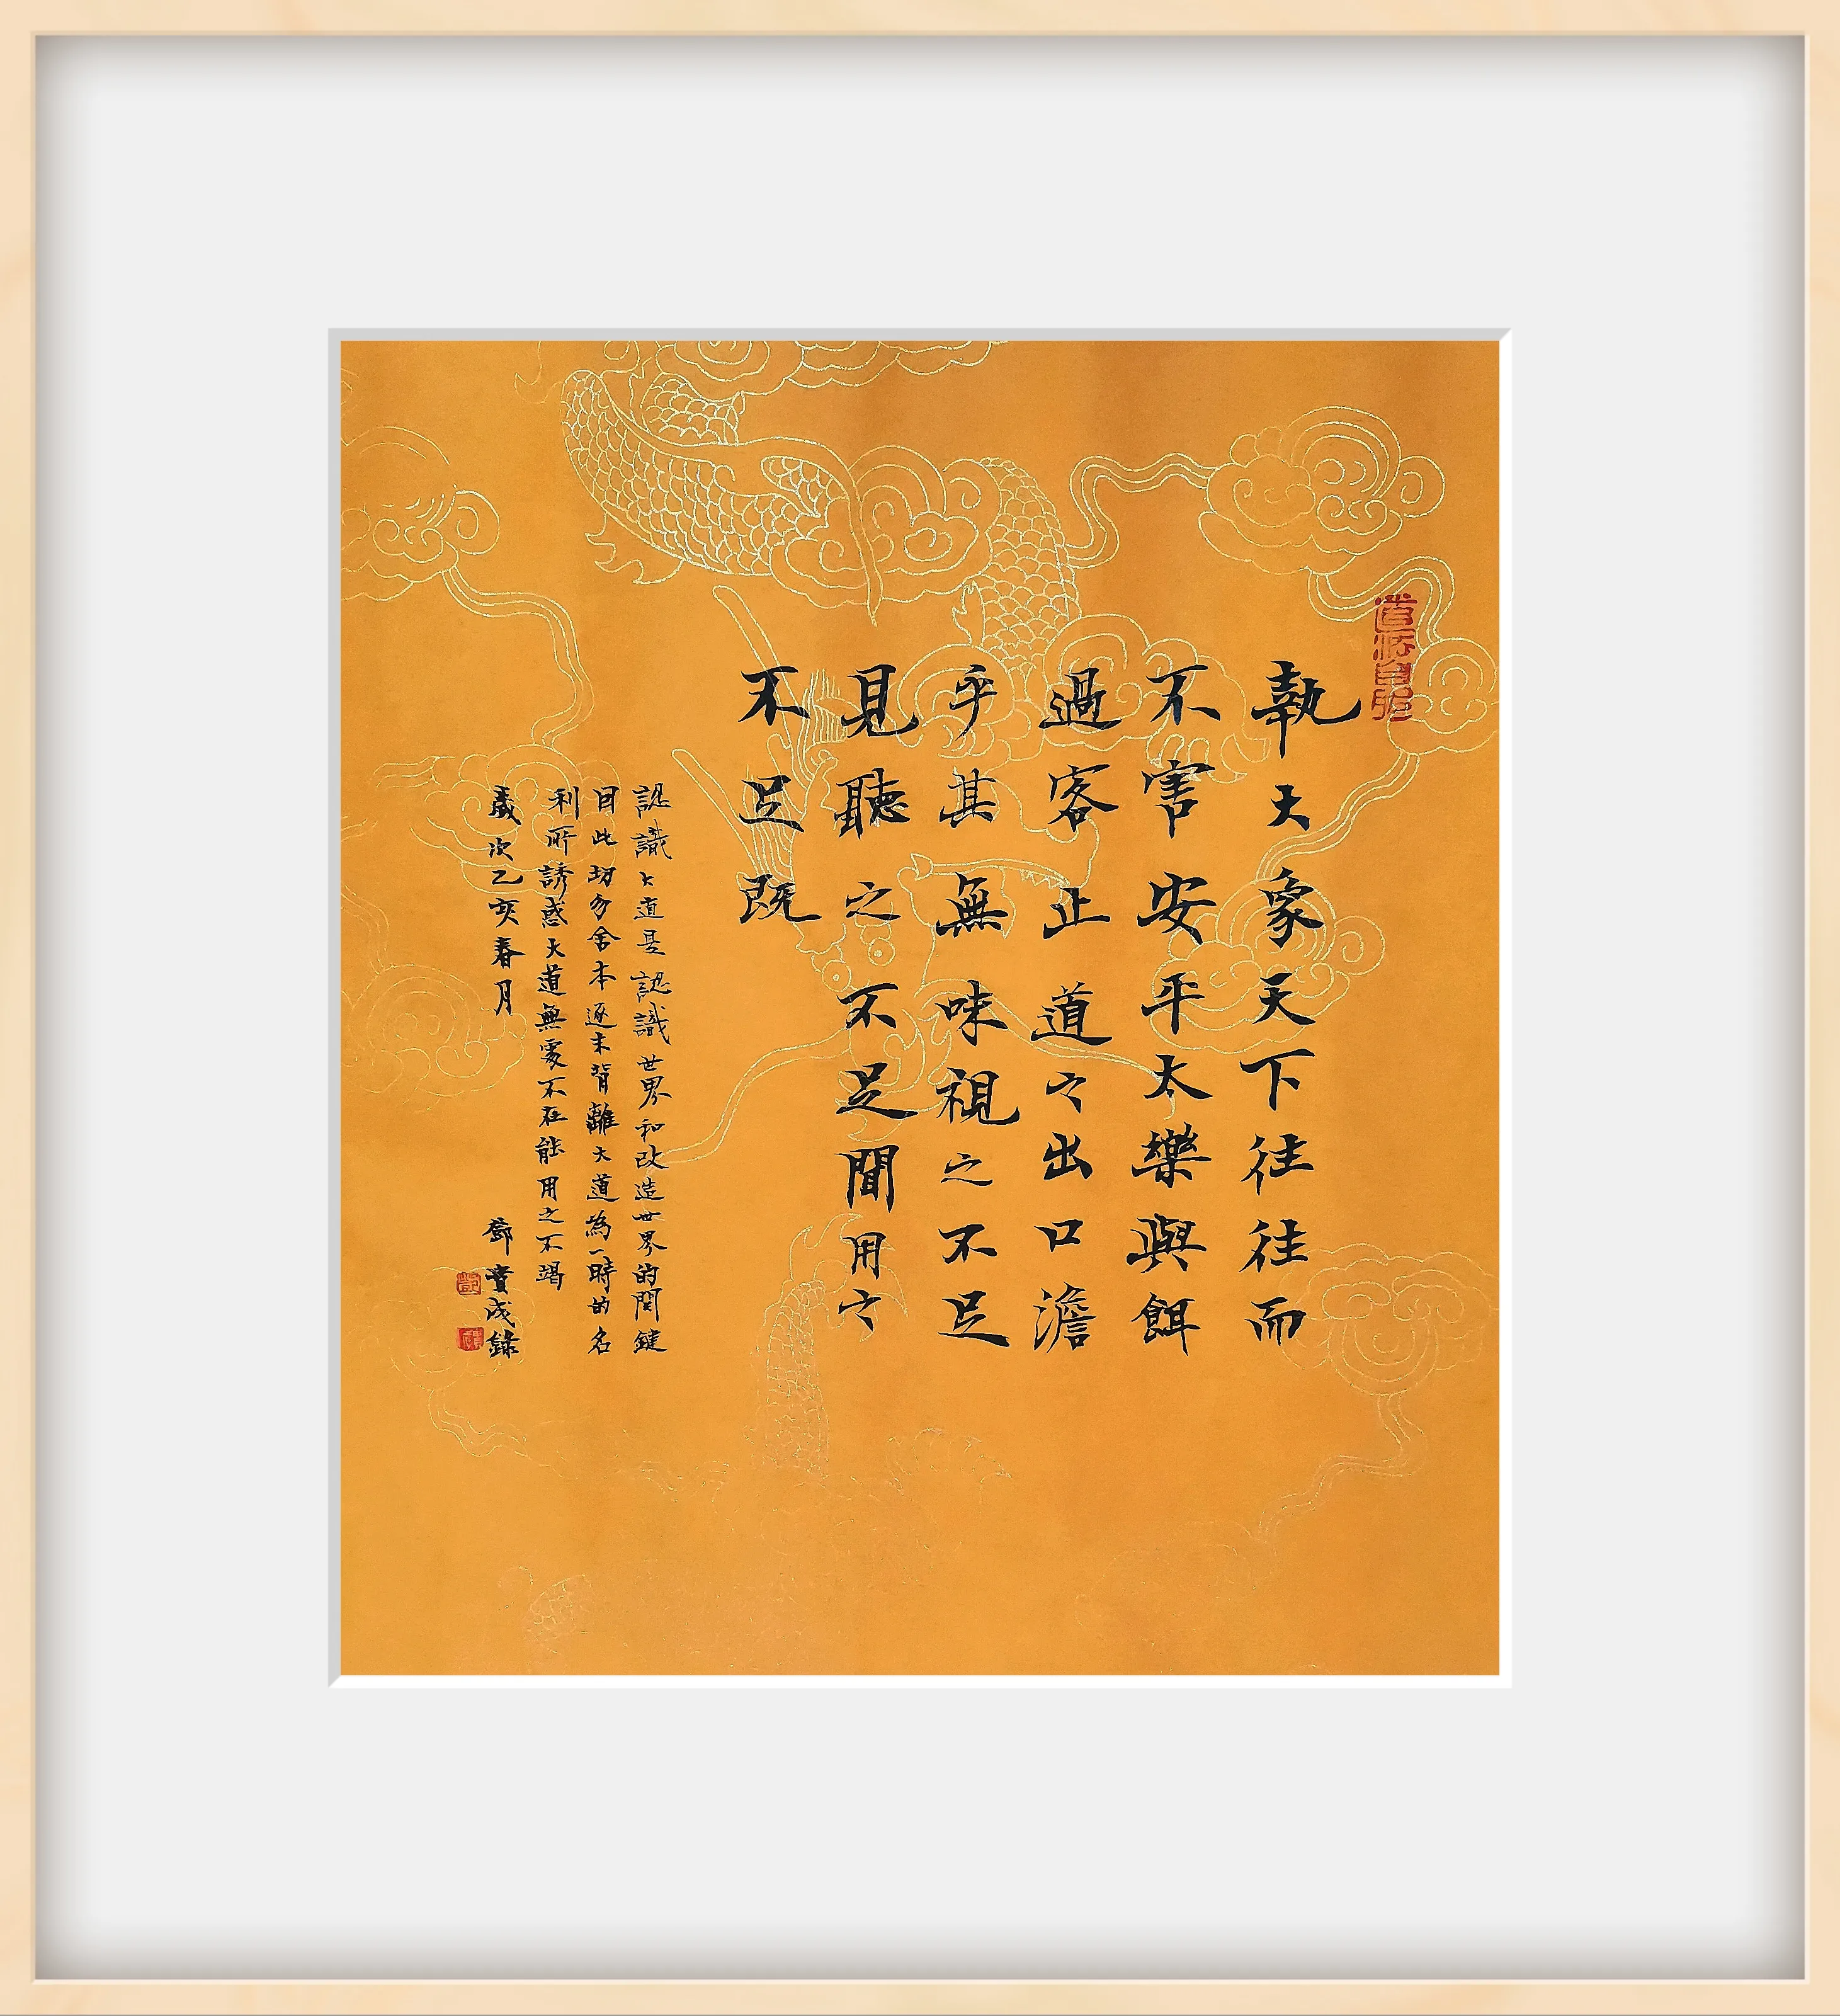 執大象天下往往而
不害安平太樂與餌
過客止道之出口澹
乎其無味視之不足
見聽之不足聞用之
不足既
認識大道是認識世界和改造世界的関鍵
因此切勿舍本逐末背離大道為一時的名
利所誘惑大道無處不在能用之不竭
歲次乙亥春月 鄧貴成錄